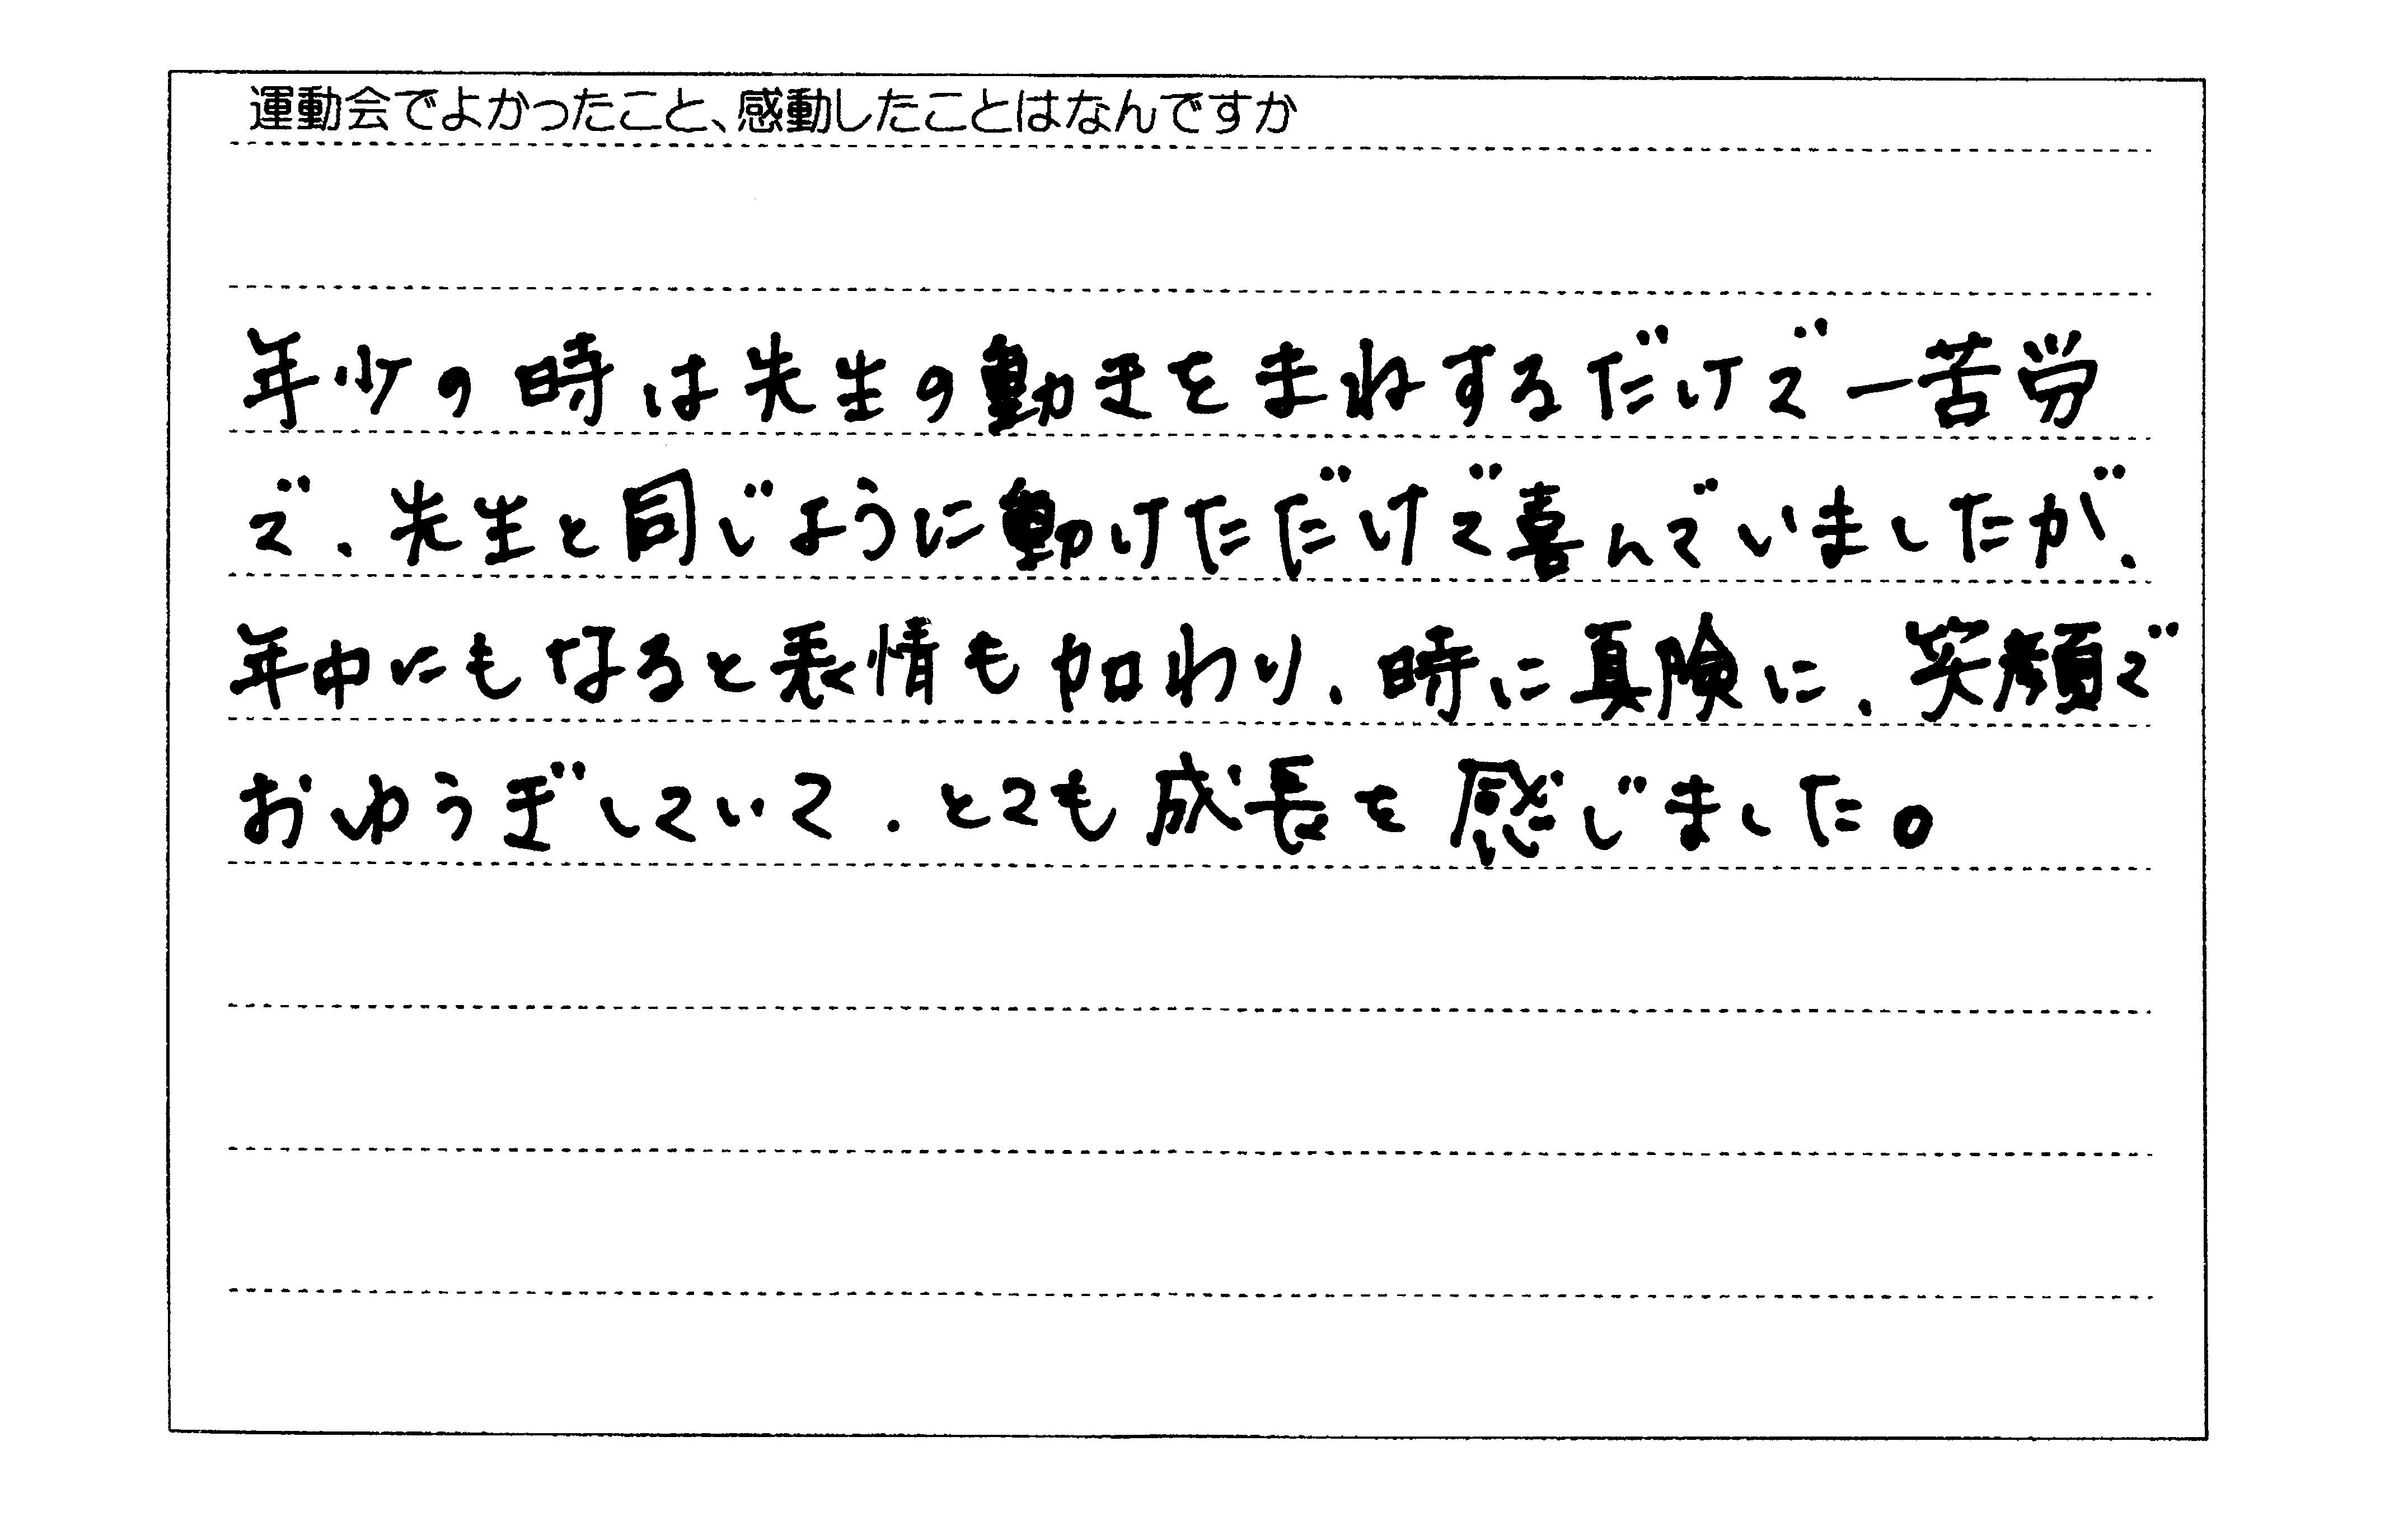 運動会でよかったこと、感動したことはなんですか
年少の時は先生の動きをまねするだけで一苦労
で、先生と同じように動けただけで喜んでいましたが、
年中にもなると表情も加わり、時に真険に、笑顔で
おゆうぎしていて、とても成長を感じました。